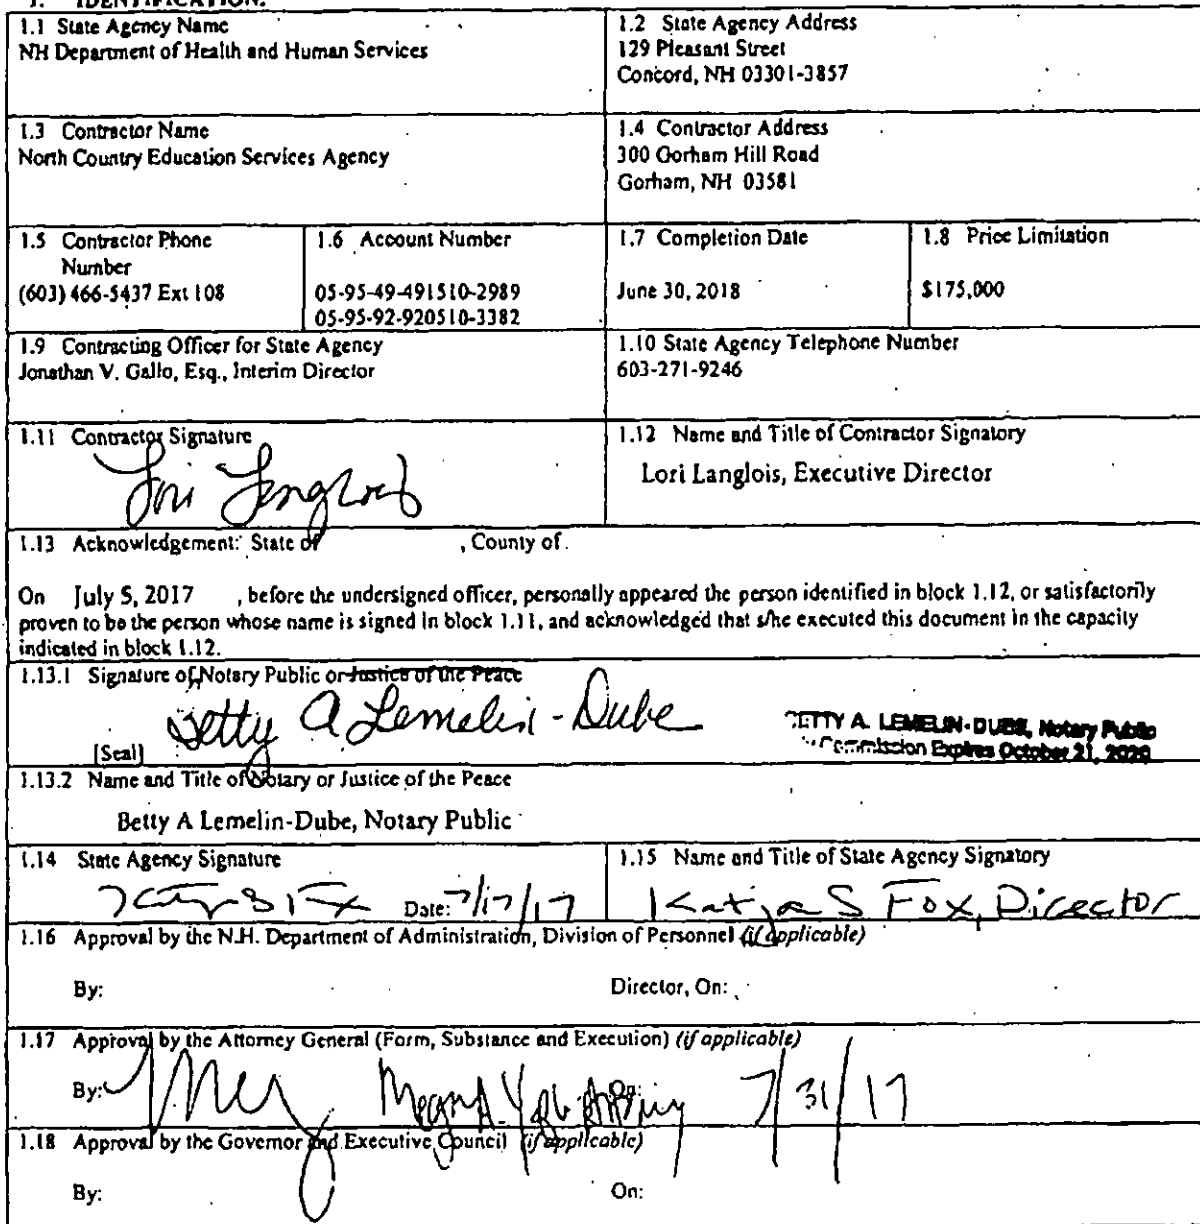 1. IDENTIFICATION.
1.1 State Agency Name
NH Department of Health and Human Services
1.2 State Agency Address
129 Pleasant Street
Concord, NH 03301-3857
1.3 Contractor Name
North Country Education Services Agency
1.4 Contractor Address
300 Gorham Hill Road
Gorham, NH 03581
1.5 Contractor Phone
Number
(603) 466-5437 Ext 108
1.6 Account Number
05-95-49-491510-2989
05-95-92-920510-3382
1.7 Completion Date
June 30, 2018
1.8 Price Limitation
$175,000
1.9 Contracting Officer for State Agency
Jonathan V. Gallo, Esq., Interim Director
1.10 State Agency Telephone Number
603-271-9246
1.11 Contractor Signature
Lori Langlois
1.12 Name and Title of Contractor Signatory
Lori Langlois, Executive Director
1.13 Acknowledgement: State of , County of
On July 5, 2017 , before the undersigned officer, personally appeared the person identified in block 1.12, or satisfactorily
proven to be the person whose name is signed in block 1.11, and acknowledged that s/he executed this document in the capacity
indicated in block 1.12.
1.13.1 Signature of Notary Public or Justice of the Peace
Betty A Lemelin-Dube
[Seal]
BETTY A. LEMELIN-DUBE, Notary Public
Commission Expires October 21, 2020
1.13.2 Name and Title of Notary or Justice of the Peace
Betty A Lemelin-Dube, Notary Public
1.14 State Agency Signature
Date: 7/17/17
1.15 Name and Title of State Agency Signatory
Katja S Fox, Director
1.16 Approval by the N.H. Department of Administration, Division of Personnel (if applicable)
By: Director, On:
1.17 Approval by the Attorney General (Form, Substance and Execution) (if applicable)
By: On: 7/31/17
1.18 Approval by the Governor and Executive Council (if applicable)
By: On: